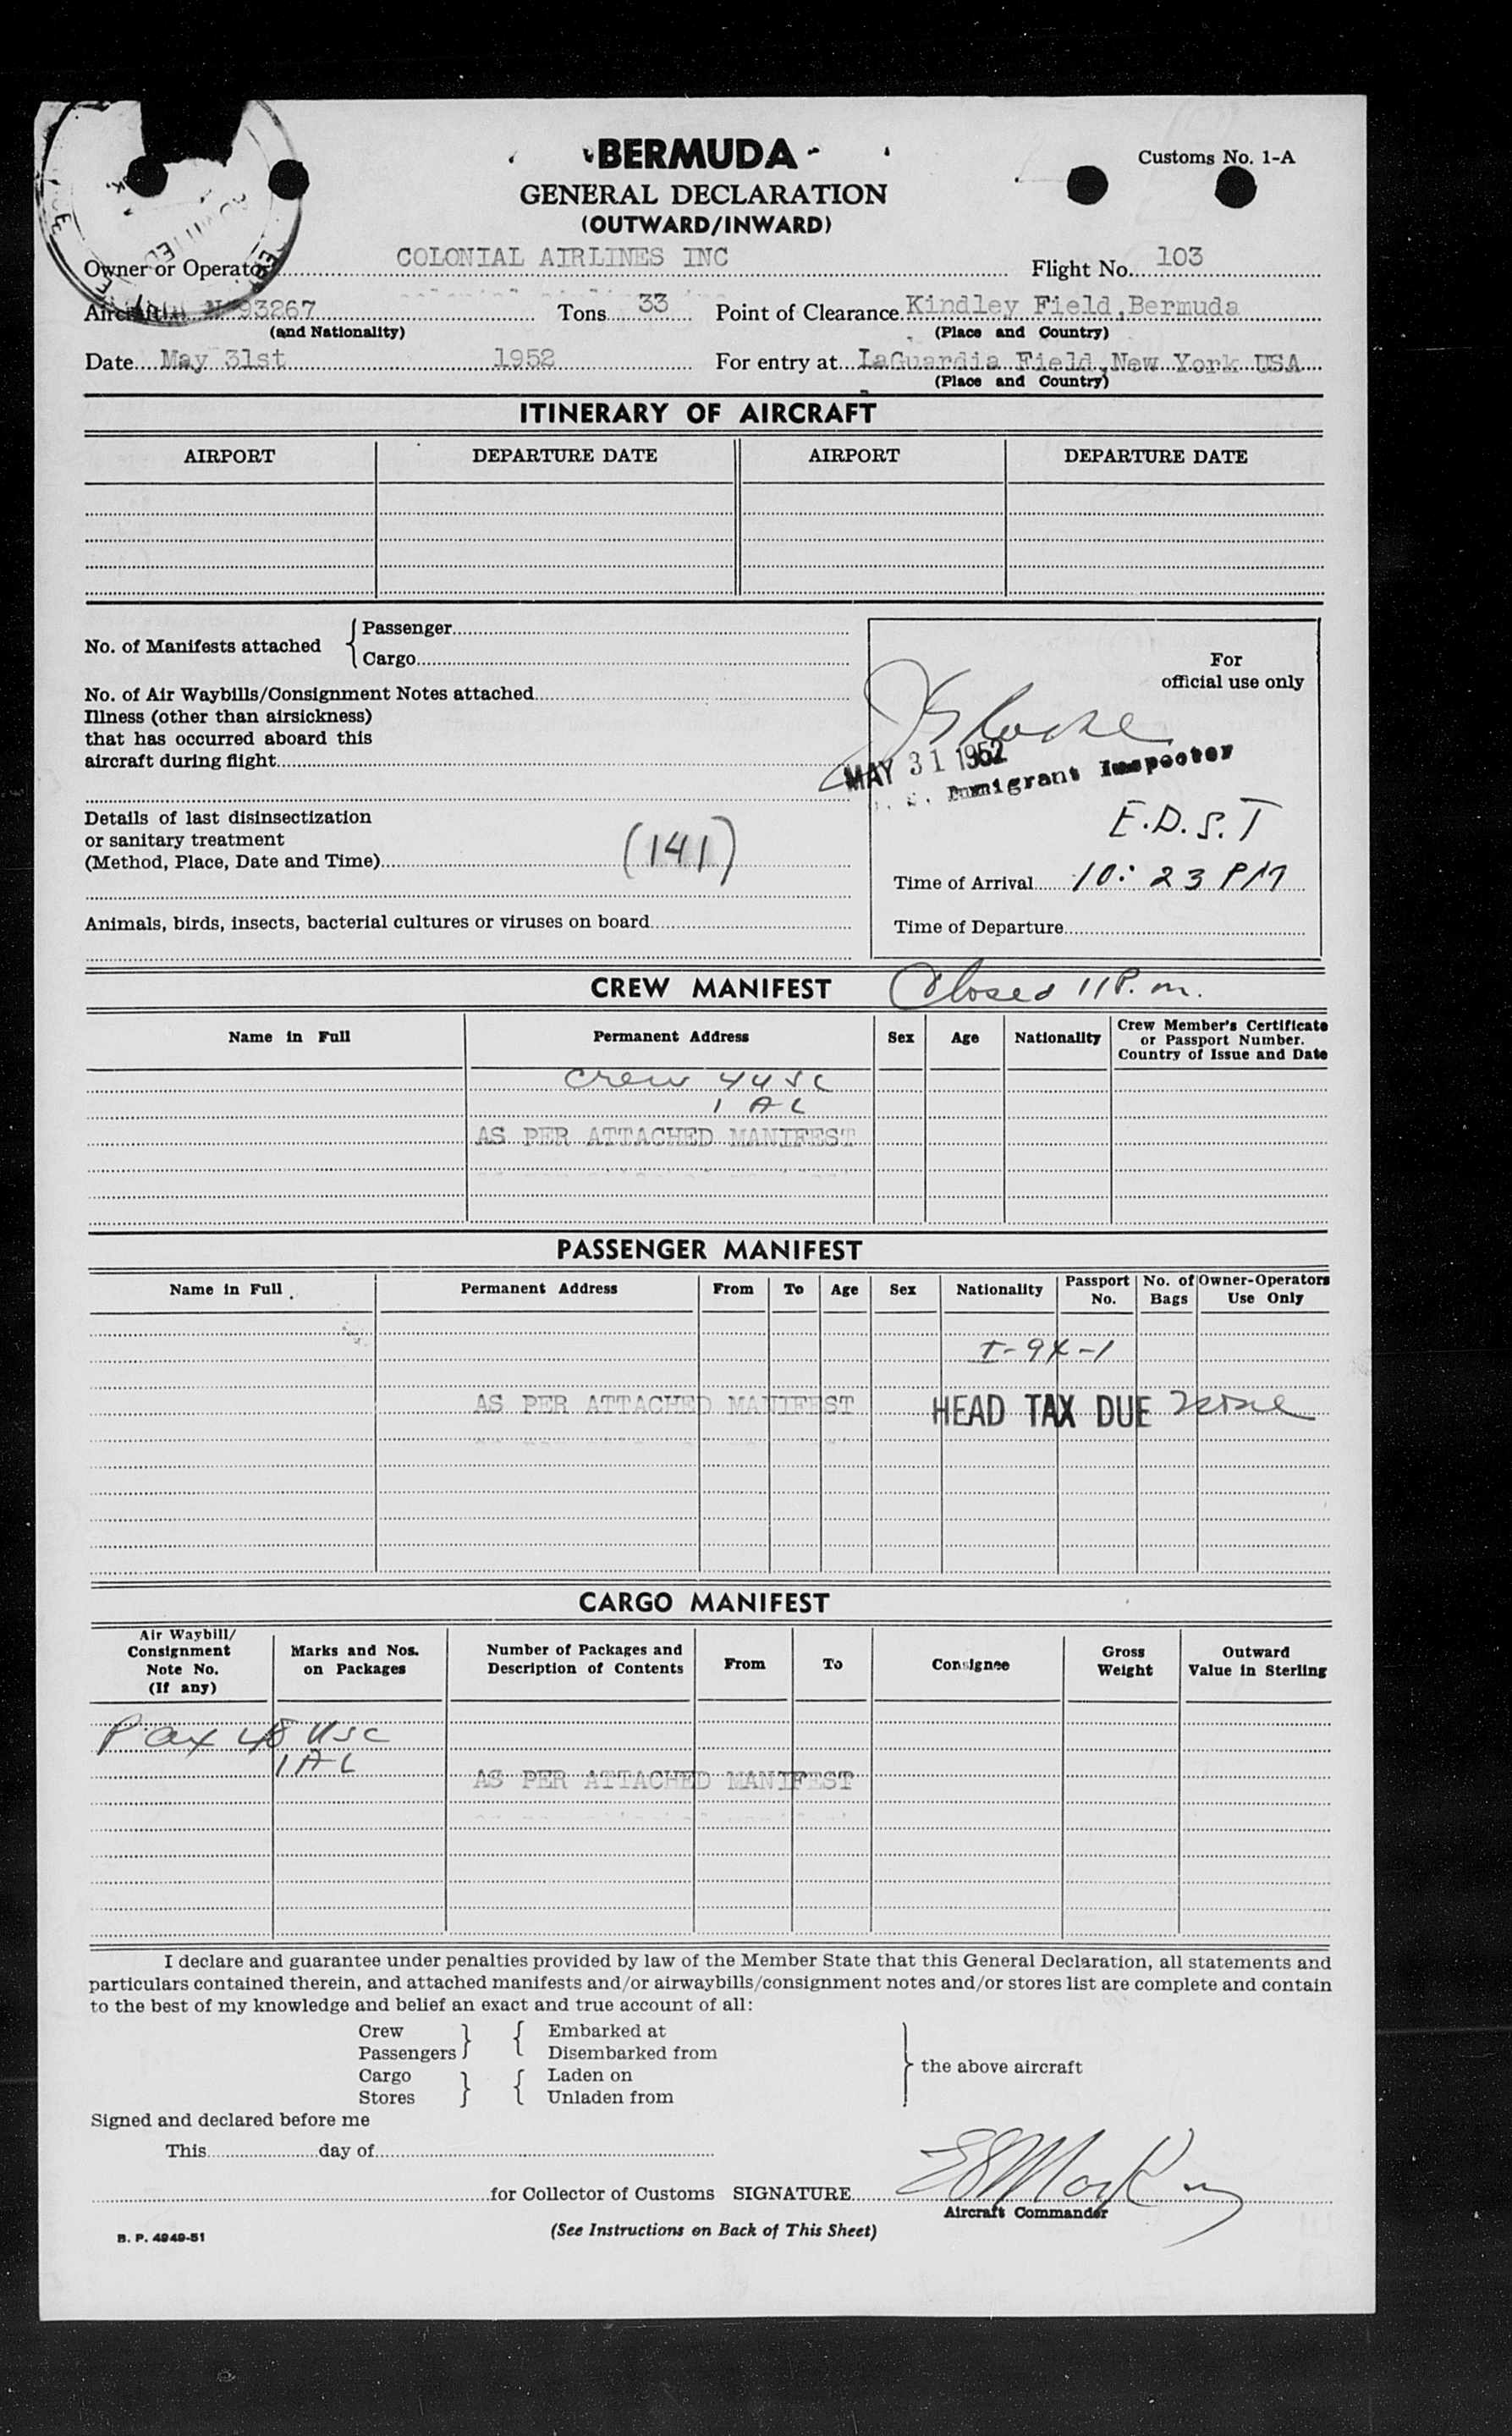 BERMUDA
Customs No. 1-A
GENERAL DECLARATION
(OUTWARD/INWARD)
Owner or Operator COLONIAL AIRLINES INC Flight No. 103
Aircraft 93267 Tons 33 Point of Clearance Kindley Field, Bermuda
(and Nationality) (Place and Country)
Date May 31st 1952 For entry at LaGuardia Field, New York USA
(Place and Country)
ITINERARY OF AIRCRAFT
AIRPORT DEPARTURE DATE AIRPORT DEPARTURE DATE
No. of Manifests attached { Passenger
Cargo
For
official use only
No. of Air Waybills/Consignment Notes attached
Illness (other than airsickness)
that has occurred aboard this
aircraft during flight
MAY 31 1952
Immigrant Inspector
Details of last disinsectization
or sanitary treatment
(Method, Place, Date and Time) (141)
E.D.S.T
Time of Arrival 10:23 PM
Animals, birds, insects, bacterial cultures or viruses on board
Time of Departure
CREW MANIFEST Closed 11 P.m.
Name in Full Permanent Address Sex Age Nationality Crew Member's Certificate
or Passport Number.
Country of Issue and Date
Crew 4 USC
1 AL
AS PER ATTACHED MANIFEST
PASSENGER MANIFEST
Name in Full Permanent Address From To Age Sex Nationality Passport No. No. of Bags Owner-Operators Use Only
I-94-1
AS PER ATTACHED MANIFEST HEAD TAX DUE None
CARGO MANIFEST
Air Waybill/
Consignment
Note No.
(If any)
Marks and Nos.
on Packages
Number of Packages and
Description of Contents
From To Consignee Gross
Weight
Outward
Value in Sterling
Pax 48 USC
1 AL
AS PER ATTACHED MANIFEST
I declare and guarantee under penalties provided by law of the Member State that this General Declaration, all statements and
particulars contained therein, and attached manifests and/or airwaybills/consignment notes and/or stores list are complete and contain
to the best of my knowledge and belief an exact and true account of all:
Crew } { Embarked at
Passengers Disembarked from
} the above aircraft
Cargo } { Laden on
Stores Unladen from
Signed and declared before me
This day of
for Collector of Customs SIGNATURE
Aircraft Commander
B. P. 4949-51
(See Instructions on Back of This Sheet)